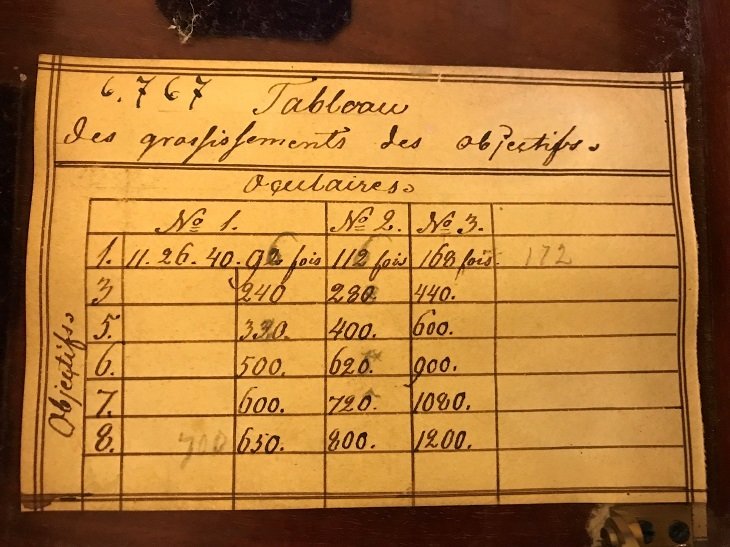 6.767 Tableau
des grossissements des objectifs.
Oculaires.
No 1. No 2. No 3.
1. 11. 26. 40. fois 112 fois 168 fois. 172
3 240 280 440.
5. 330. 400. 600.
6. 500. 620. 900.
7. 600. 720. 1080.
8. 700 650. 800. 1200.
Objectifs.